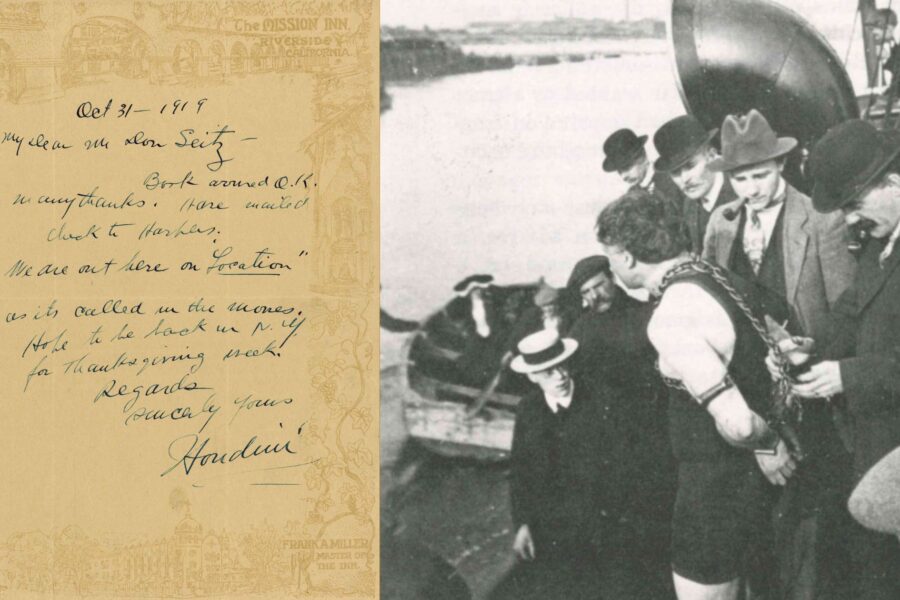 The MISSION INN
RIVERSIDE
CALIFORNIA
Oct 31 - 1919
My dear Mr Don Seitz -
Book arrived O.K.
many thanks. Have mailed
check to Harpers.
We are out here on "Location"
as its called in the movies.
Hope to be back in N.Y.
for Thanksgiving week.
Regards
sincerly yours
Houdini
FRANK A. MILLER
MASTER OF
THE INN